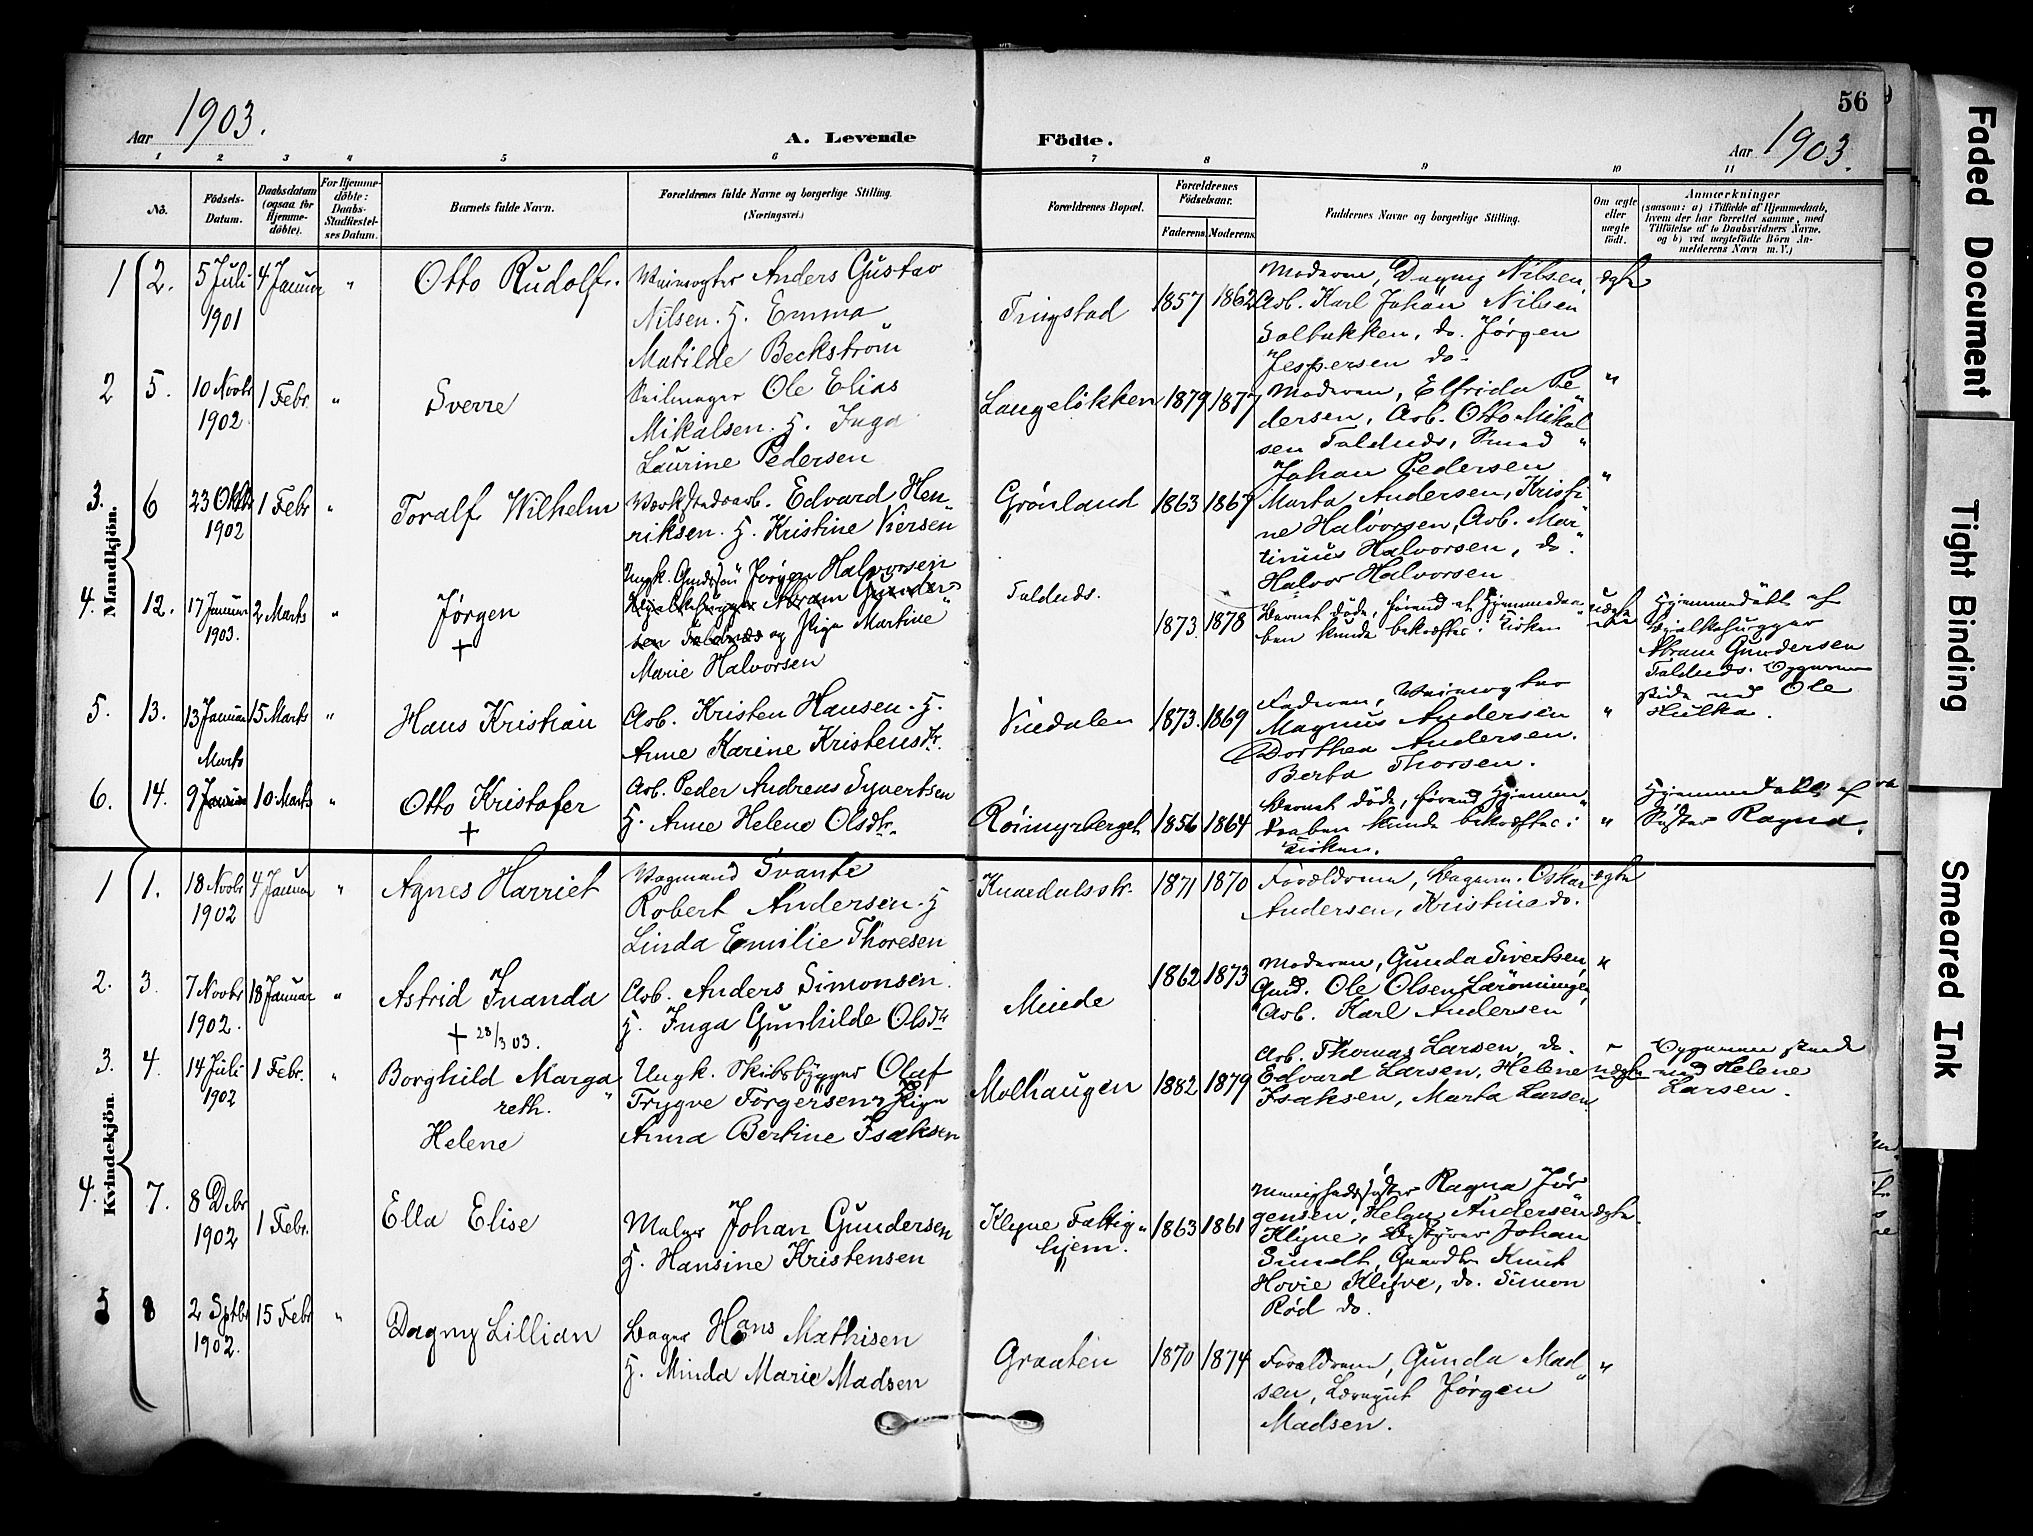 56
Aar 1903.
A. Levende Födte.
Aar 1903.
1 2 3 4 5 6 7 8 9 10 11
No.
Födsels-Datum.
Daabsdatum (ogsaa for Hjemme-döbte).
For Hjemme-döbte: Daabs-Stadfæstel-ses Datum.
Barnets fulde Navn.
Forældrenes fulde Navne og borgerlige Stilling.
(Næringsvei.)
Forældrenes Bopæl.
Forældrenes Födselsaar.
Faderens Moderens
Faddernes Navne og borgerlige Stilling.
Om ægte eller uægte födt.
Anmærkninger
(saasom: a) i Tilfælde af Hjemmedaab,
hvem der har forrettet samme, med
Tilföielse af to Daabsvidners Navne.
og b) ved uægtefödte Börn An-
melderens Navn m. V.)
Mandkjön.
1 2. 5 Juli 1901 4 Januar " Otto Rudolf.
Anders Gustav
Nilsen. H. Emma
Matilde Beckström
Tingstad 1857 1862
Moderen, Dagny Nilsen,
Arb. Karl Johan Nilsen
Solbakken, do. Jørgen
Jespersen do.
ægte
2 5. 10 Novbr 1902 1 Febr. " Sverre
Seilmager Ole Elias
Mikalsen. H. Inga
Laurine Pedersen
Langeløkken 1879 1877
Moderen, Elfrida Pe"
dersen, Arb. Otto Mikal
sen Faldnds, Smed "
Johan Pedersen
"
3. 6 23 Oktbr 1902 1 Febr " Toralf Wilhelm
Værkstedsarb. Edvard Hen
riksen. H. Kristine Iversen
Grönland 1863 1867
Marta Andersen, Kristi
ne Halvorsen, Arb. Mar
tinius Halvorsen, do.
Halvor Halvorsen
"
4. 12. 17 Januar 1903. 2 Marts " Jørgen
+
Ungk. Jørgen Halvorsen
og Pige Martine
Marie Halvorsen
Faldnds. 1873. 1878
Barnet døde, førend at Hjemmedaa
ben kunde bekræftes i Kirken
uægte
Hjemmedøbt af
Bjelkehugger
Abram Gundersen
Faldnds. Opgaven
ved Ole
Hulka.
5. 13. 13 Januar 15 Marts " Hans Kristian
Arb. Kristen Hansen. H.
Anne Karine Kristensdtr.
Vindalen 1873. 1869
Faderen,
Magnus Andersen
Dorthea Andersen.
Berta Thorsen.
"
6. 14. 9 Marts 10 Marts " Otto Kristofer
+
Arb. Peder Andreas Syvertsen
H. Anne Helene Olsdtr.
Röimyrberget 1856 1864
Barnet døde, førend Hjemme"
daaben kunde bekræftes i
Kirken.
"
Hjemmedøbt af
Søster Ragna.
Kvindekjön.
1 1. 18 Novbr 1902 4 Januar " Agnes Harriet
Vogmand Svante
Robert Andersen. H
Linda Emilie Thoresen
Knardalsstr. 1871 1870
Forældrene, Oskar
Andersen, Kristina do.
ægte
2. 3. 7 Novbr 1902. 18 Januar " Astrid Juanda
+ 28/3 03.
Arb. Anders Simonsen.
H. Inga Gunhilde Olsdtr
Minde 1862 1873
Moderen, Gunda Sivertsen,
Gmd. Ole Olsen
Arb. Karl Andersen
"
3. 4. 14 Juli 1902 1 Febr. " Borghild Marga"
reth.
Helene
Ungk. Skibsbygger Olaf
Trygve Torgersen Pige
Anna Bertine Isaksen
Molhaugen 1882 1879
Arb. Thomas Larsen, do.
Edvard Larsen, Helene
Isaksen, Marta Larsen.
uægte
Opgaven
ved Helene
Larsen.
4. 7. 8 Debr 1902 1 Febr. Ella Elise
Maler Johan Gundersen
H. Hansine Kristensen
Klyve Fattig"
hjem. 1863 1861
Menighedssøster Ragna Jør
gensen, Helga Andersen
Klyve, Bestyrer Johan
Sundt, Gaardbr Knut
Hovie Klyve, do. Simon
Rød do.
ægte.
5 8 2 Septbr 1902. 15 Febr " Dagny Lillian
Bager Hans Mathisen
H. Minda Marie Madsen
Graaten 1870 1874
Forældrene, Gunda Mad"
sen, Jørgen
Madsen.
"
Faded Document
Tight Binding
Smeared Ink